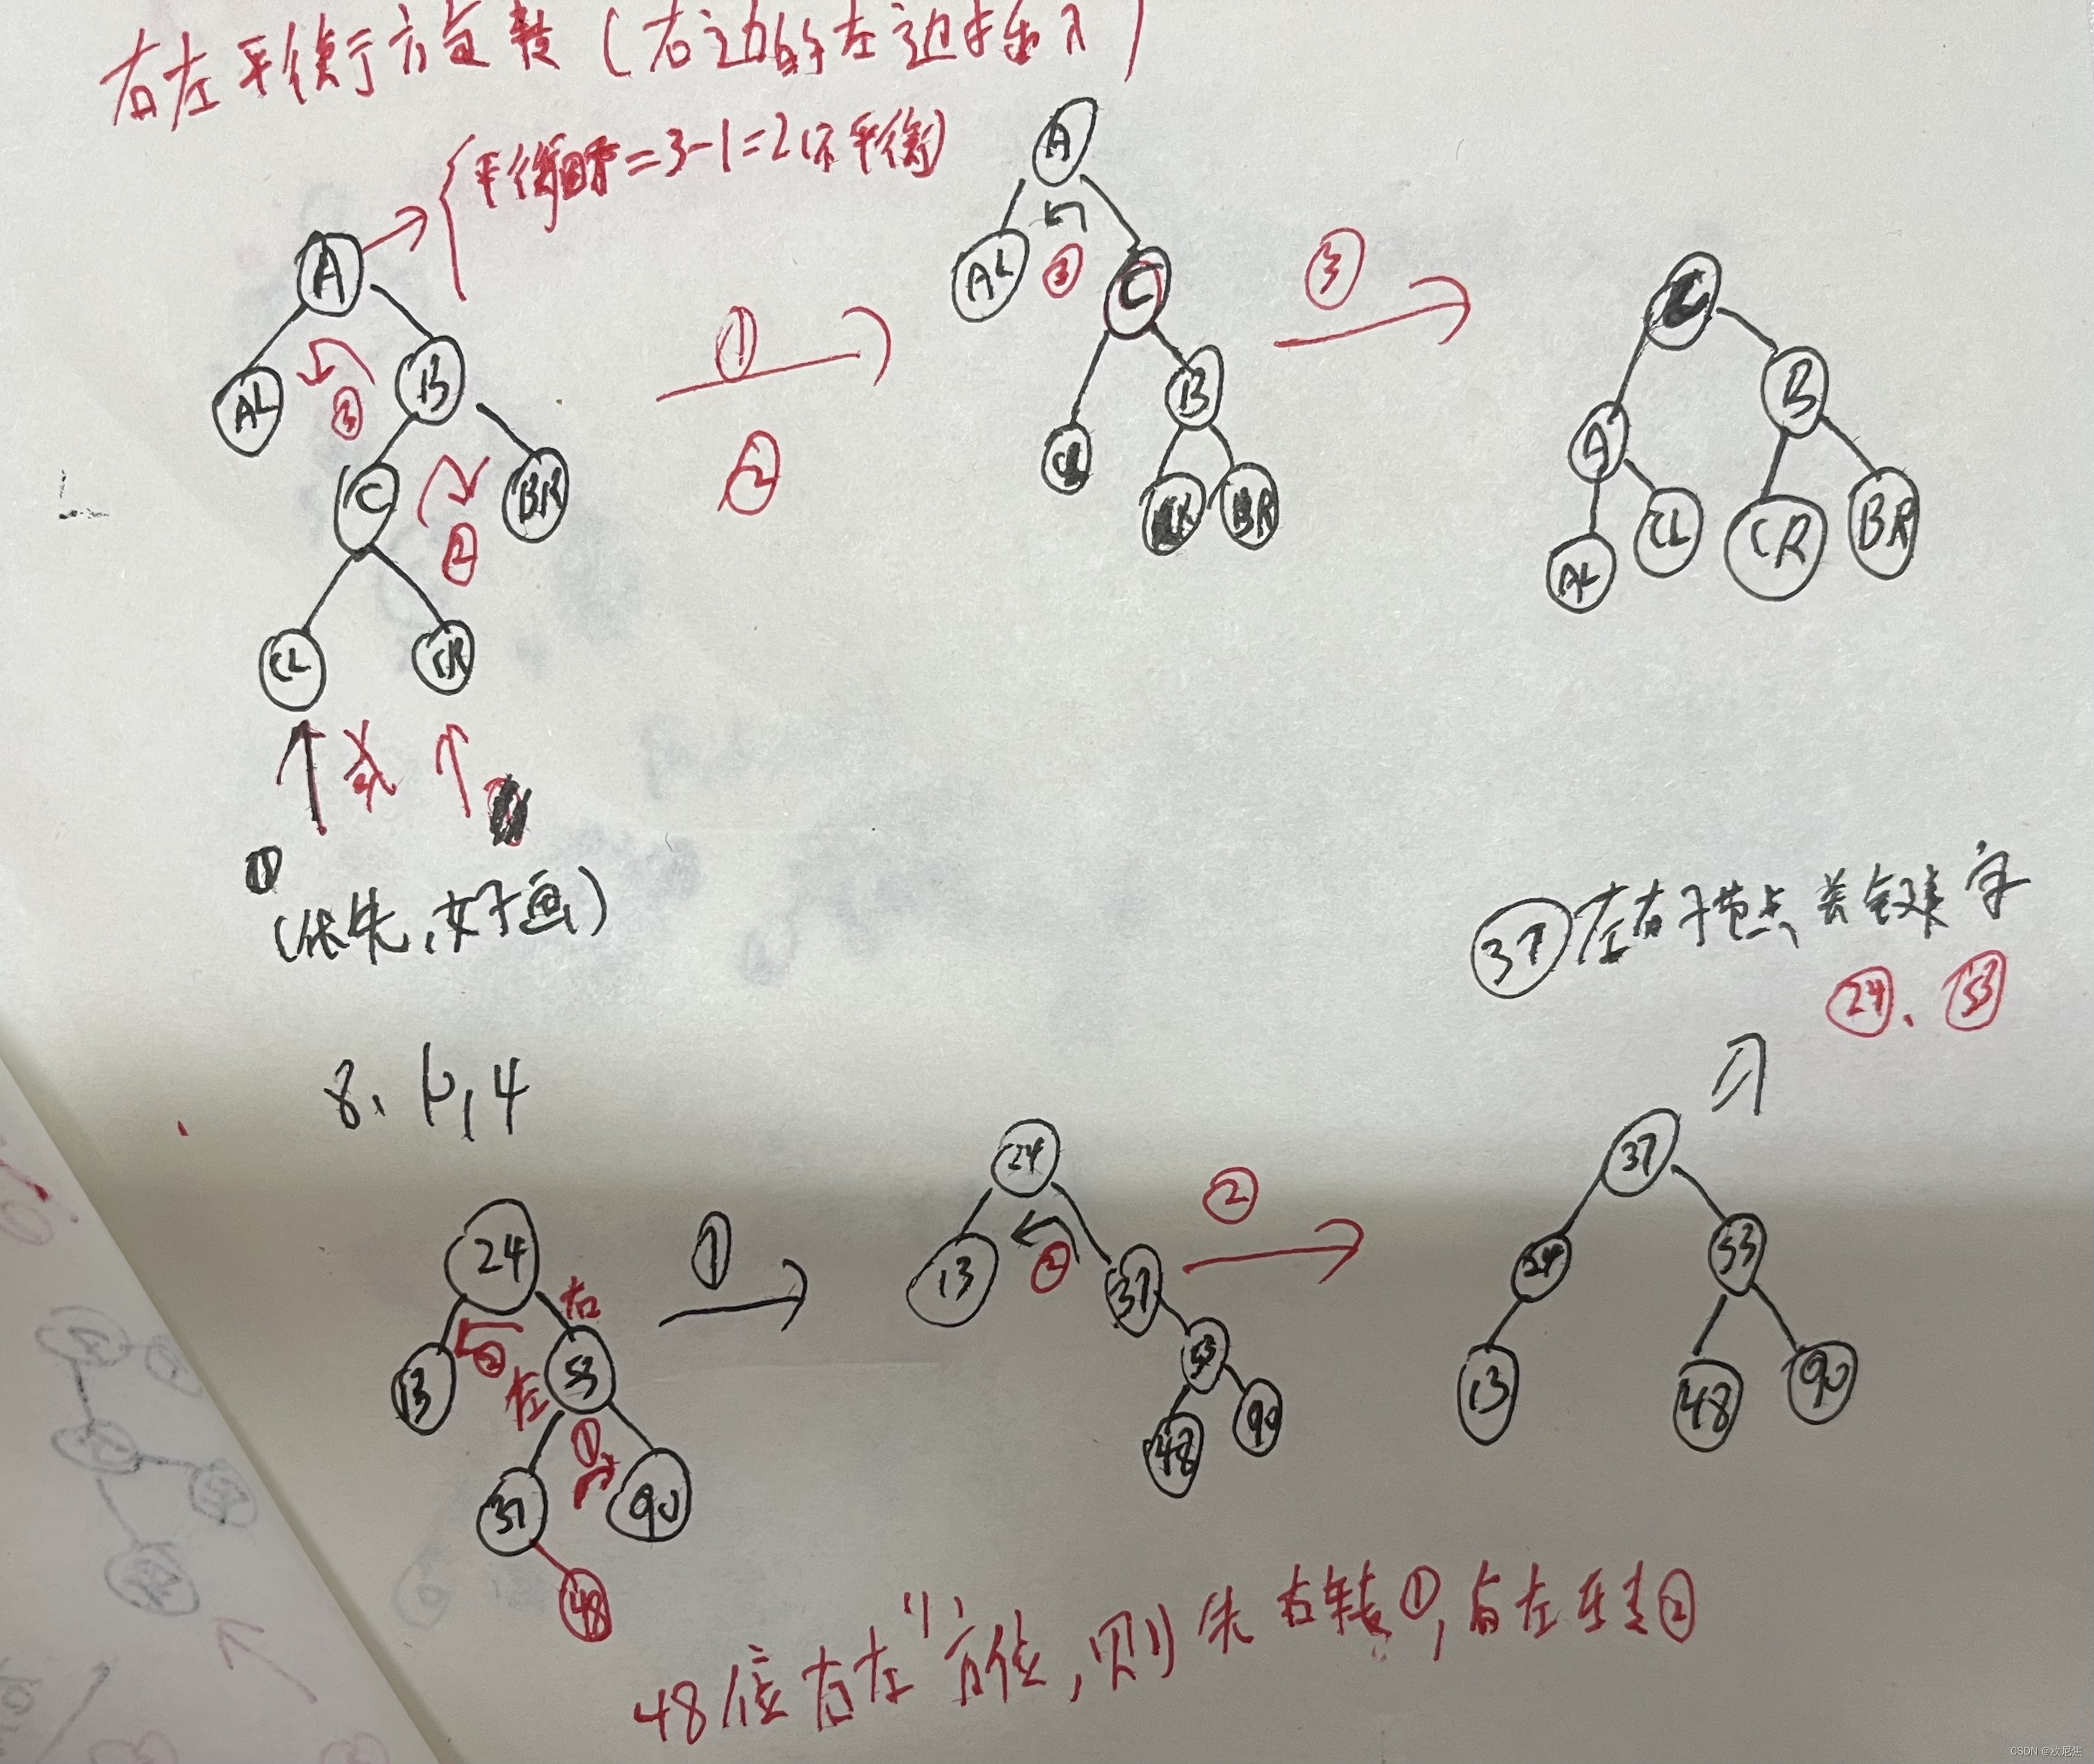 右左平衡行方旋转（右边的左边插入）
平衡因子=3-1=2(不平衡)
A
AL
③
B
C
②
BR
CL
CR
或
①
(优先,好画)
①
②
A
AL
③
C
B
BR
③
C
A
B
AL
CL
CR
BR
37 左右子节点关键字
24、53
8、P,4
24
右
13
②
左
53
①
37
90
48
①
24
13
②
37
53
48
90
②
37
24
53
13
48
90
48位右左方位,则先右转①,后左转②
CSDN @欧尼焦